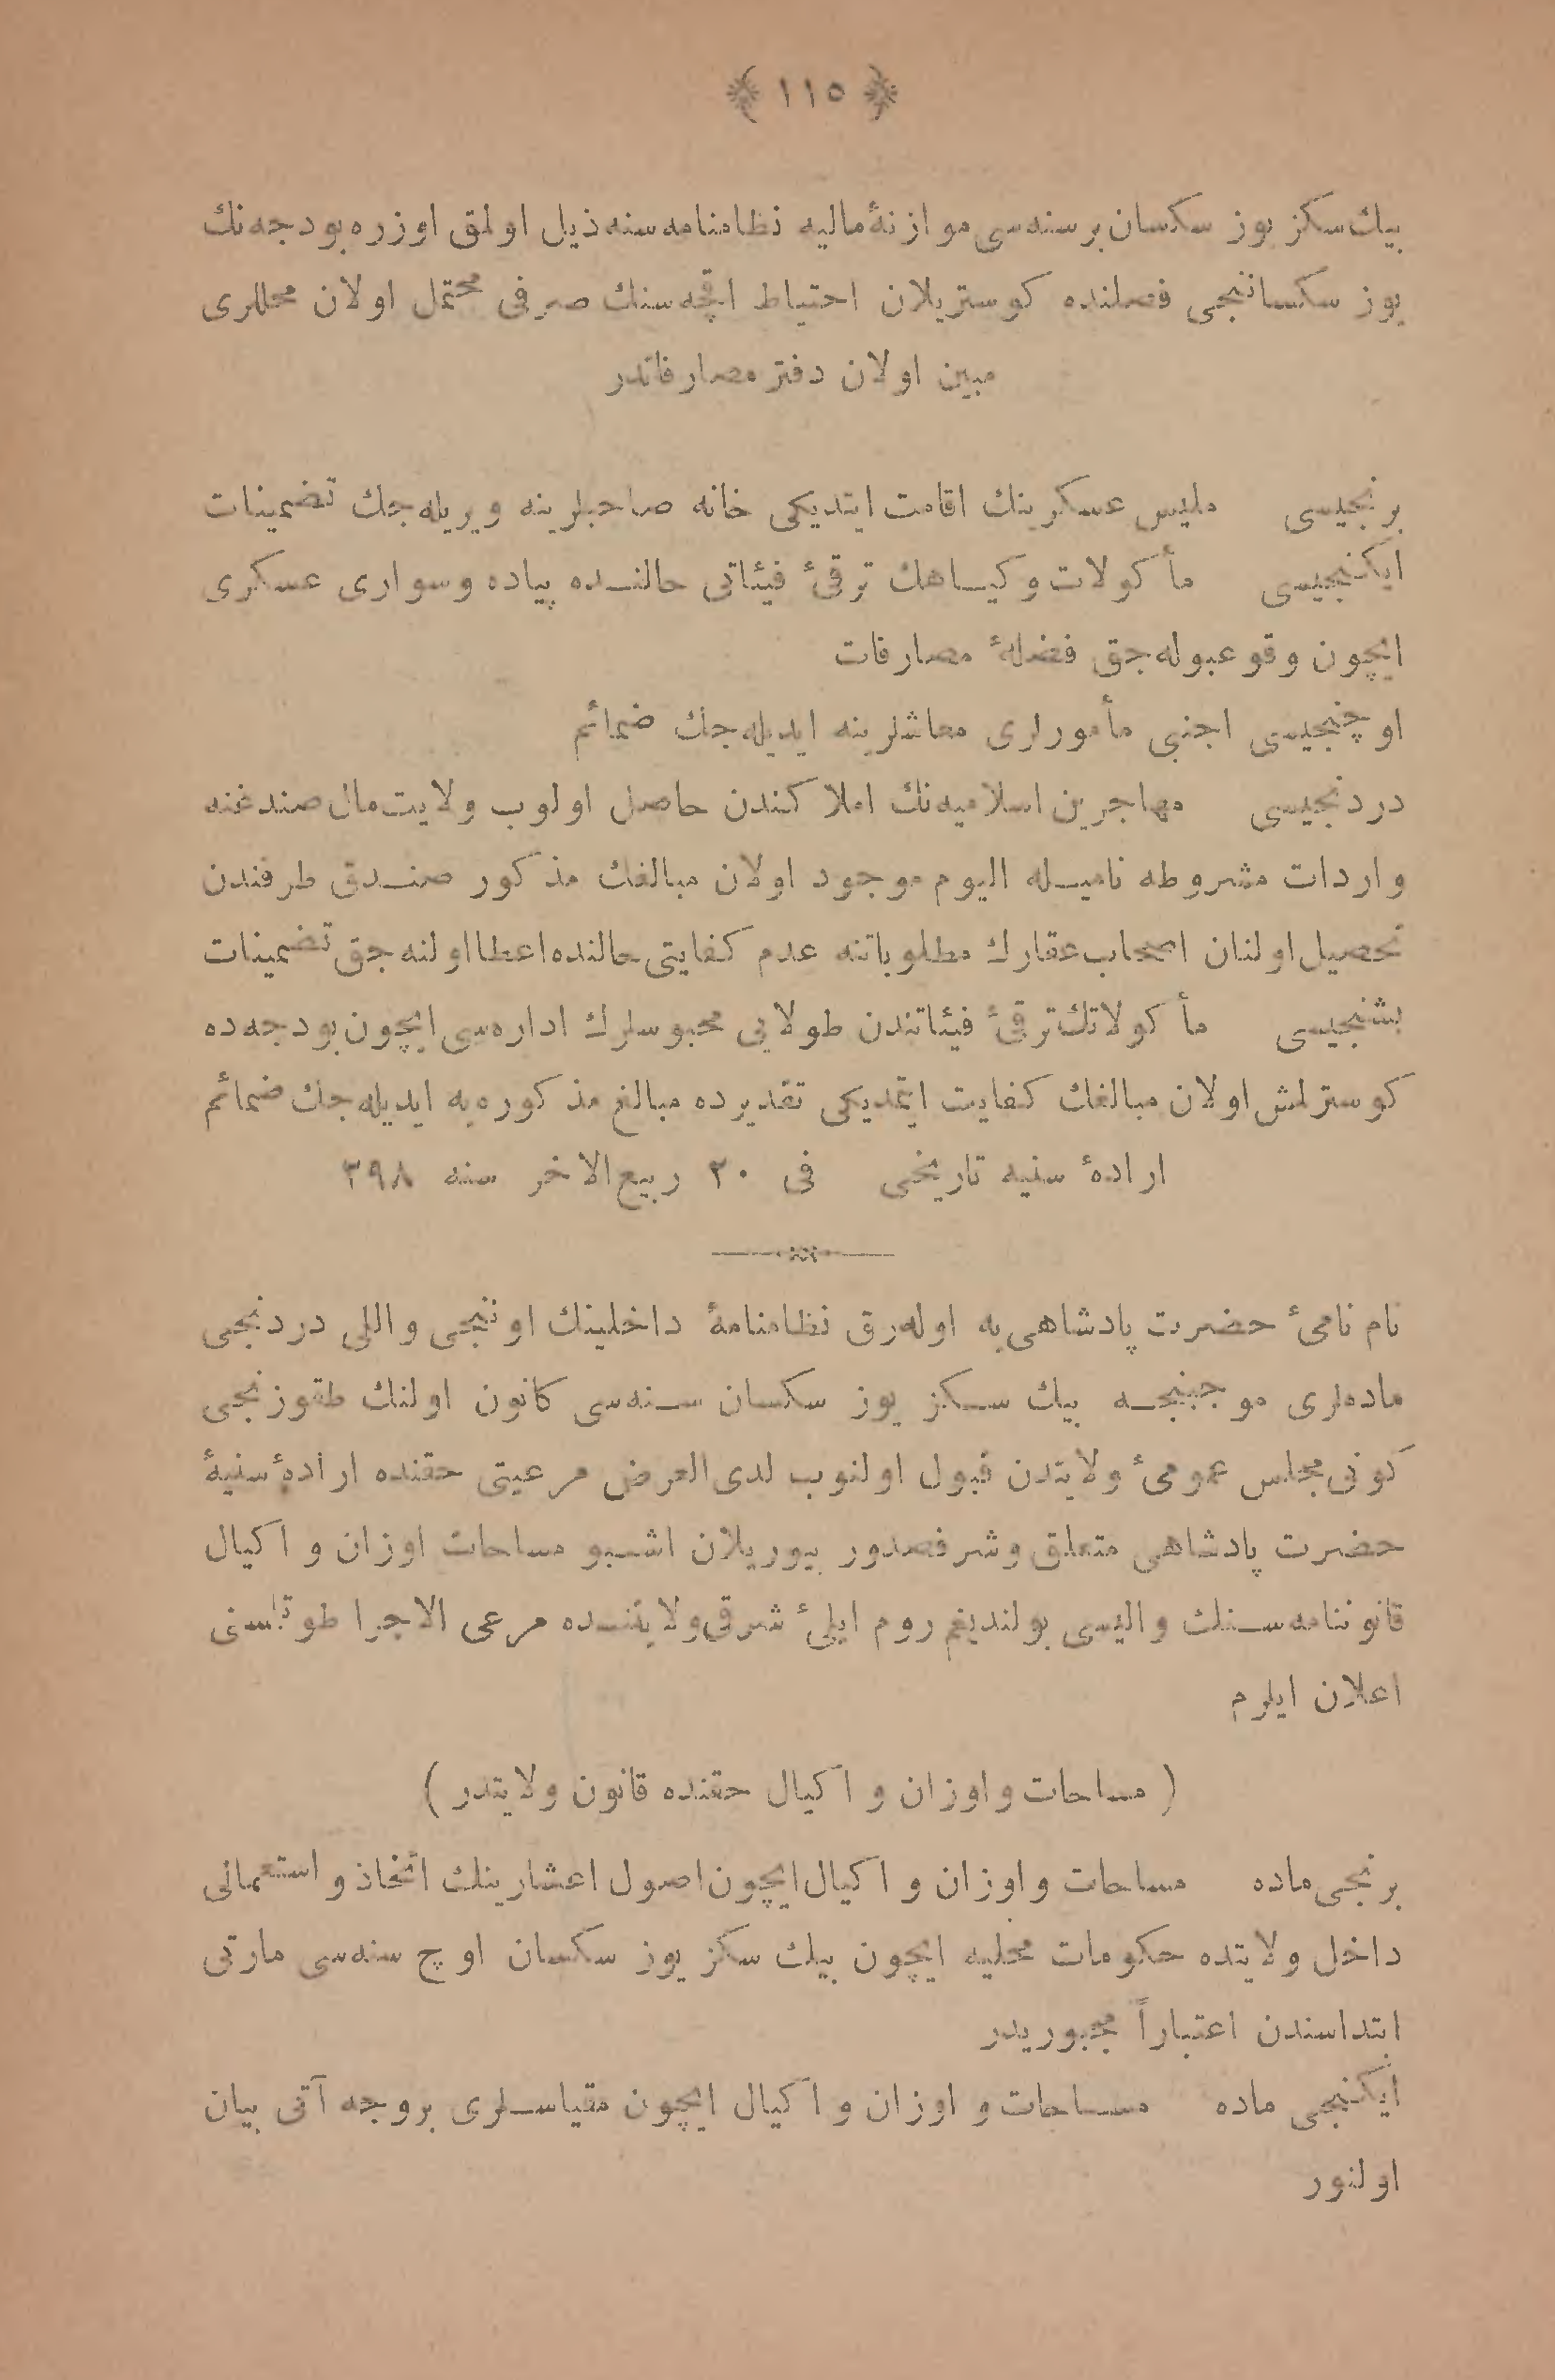 ﴿ ١١٥ ﴾
بيك سكز يوز سكسان بر سنه‌سى موازنهٔ ماليه نظامنامه سنه ذيل اولمق اوزره بودجه‌نك
يوز سكساننجى فصلنده كوستريلان احتياط اقچه‌سنك صرفى محتمل اولان محللرى
مبين اولان دفتر مصارفاتدر
برنجيسى مليس عسكرينك اقامت ايتديكى خانه صاحبلرينه ويريله‌جك تضمينات
ايكنجيسى مأكولات و كياهك ترقىٔ فيئاتى حالنده پياده و سوارى عسكرى
ايچون وقوعبوله‌جق فضلهٔ مصارفات
اوچنجيسى اجنبى مأمورلرى معاشلرينه ايديله‌جك ضمائم
دردنجيسى مهاجرين اسلاميه‌نك املاكندن حاصل اولوب ولايت مال صندغنه
واردات مشروطه ناميله اليوم موجود اولان مبالغك مذكور صندق طرفندن
تحصيل اولنان اصحاب عقارك مطلوباتنه عدم كفايتى حالنده اعطا اولنه‌جق تضمينات
بشنجيسى مأكولاتك ترقىٔ فيئاتندن طولايى محبوسلرك اداره‌سى ايچون بودجه‌ده
كوسترلمش اولان مبالغك كفايت ايتمديكى تقديرده مبالغ مذكوره‌يه ايديله‌جك ضمائم
ارادهٔ سنيه تاريخى فى ٢٠ ربيع الاخر سنه ٣٩٨
نام نامىٔ حضرت پادشاهى‌يه اوله‌رق نظامنامهٔ داخلينك اوننجى و اللى دردنجى
ماده‌لرى موجبنجه بيك سكز يوز سكسان سنه‌سى كانون اولنك طقوزنجى
كونى مجلس عمومىٔ ولايتدن قبول اولنوب لدى العرض مرعيتى حقنده ارادهٔ سنيهٔ
حضرت پادشاهى متعلق و شرفصدور بيوريلان اشبو مساحات اوزان و اكيال
قانوننامه‌سنك واليسى بولنديغم روم ايلىٔ شرقى ولايتنده مرعى الاجرا طوتلمسنى
اعلان ايلرم
( مساحات و اوزان و اكيال حقنده قانون ولايتدر )
برنجى ماده مساحات و اوزان و اكيال ايچون اصول اعشارينك اتخاذ و استعمالى
داخل ولايتده حكومات محليه ايچون بيك سكز يوز سكسان اوچ سنه‌سى مارتى
ابتداسندن اعتباراً مجبوريدر
ايكنجى ماده مساحات و اوزان و اكيال ايچون مقياسلرى بروجه آتى بيان
اولنور